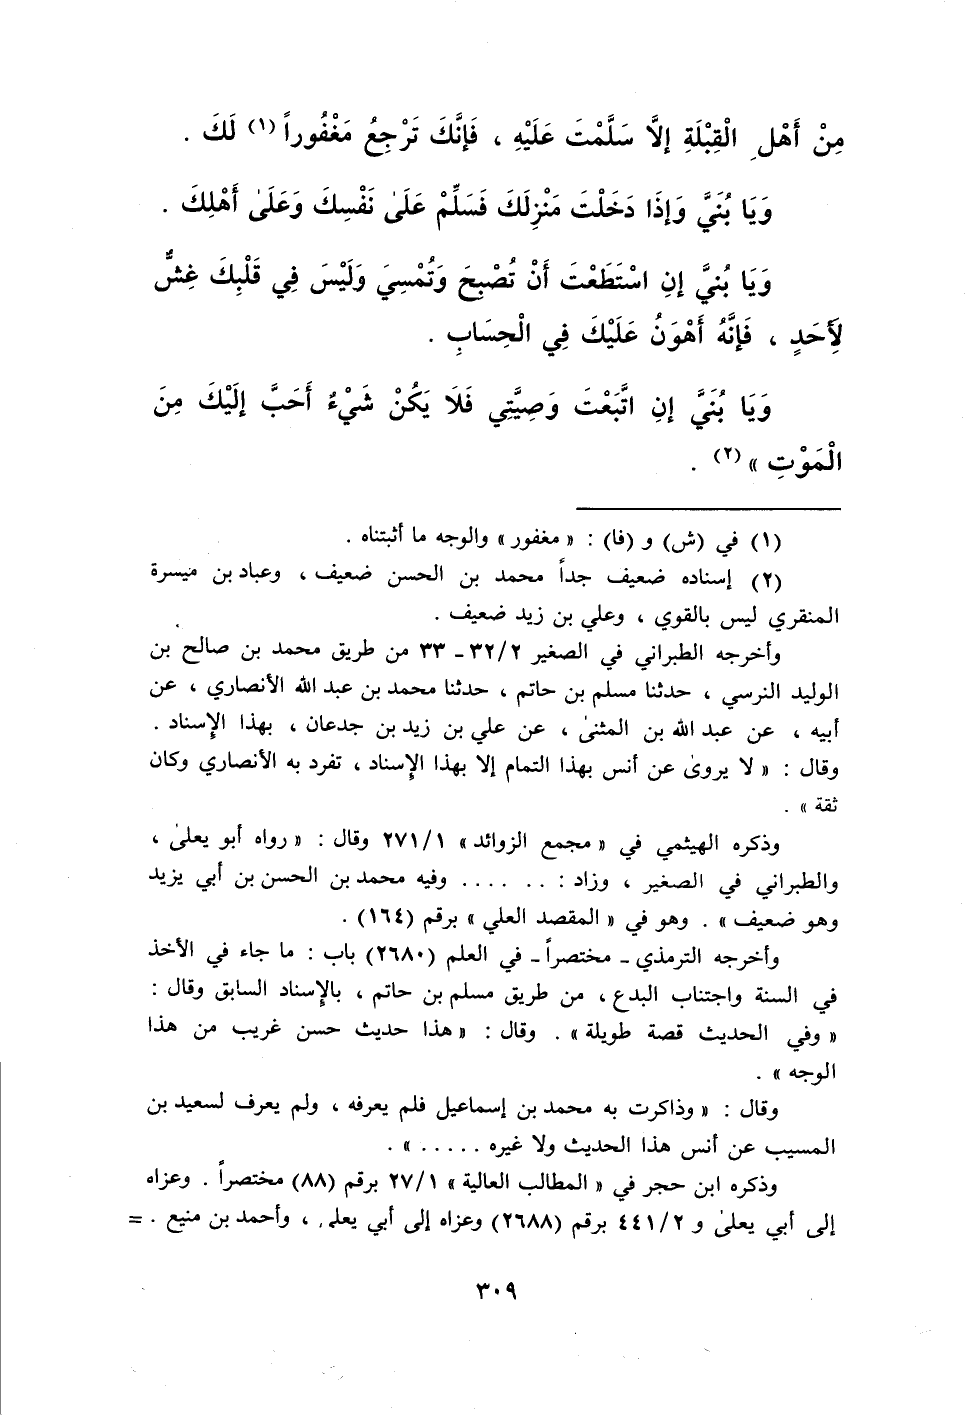 مِنْ أَهْلِ الْقِبْلَةِ إِلَّا سَلَّمْتَ عَلَيْهِ ، فَإِنَّكَ تَرْجِعُ مَغْفُوراً (١) لَكَ .
وَيَا بُنَيَّ وَإِذَا دَخَلْتَ مَنْزِلَكَ فَسَلِّمْ عَلَىٰ نَفْسِكَ وَعَلَىٰ أَهْلِكَ .
وَيَا بُنَيَّ إِنِ اسْتَطَعْتَ أَنْ تُصْبِحَ وَتُمْسِيَ وَلَيْسَ فِي قَلْبِكَ غِشٌّ
لِأَحَدٍ ، فَإِنَّهُ أَهْوَنُ عَلَيْكَ فِي الْحِسَابِ .
وَيَا بُنَيَّ إِنِ اتَّبَعْتَ وَصِيَّتِي فَلَا يَكُنْ شَيْءٌ أَحَبَّ إِلَيْكَ مِنَ
الْمَوْتِ » (٢) .
(١) في (ش) و (فا) : « مغفور » والوجه ما أثبتناه .
(٢) إسناده ضعيف جداً محمد بن الحسن ضعيف ، وعباد بن ميسرة
المنقري ليس بالقوي ، وعلي بن زيد ضعيف .
وأخرجه الطبراني في الصغير ٣٢/٢ ـ ٣٣ من طريق محمد بن صالح بن
الوليد النرسي ، حدثنا مسلم بن حاتم ، حدثنا محمد بن عبد الله الأنصاري ، عن
أبيه ، عن عبد الله بن المثنىٰ ، عن علي بن زيد بن جدعان ، بهذا الإسناد .
وقال : « لا يروىٰ عن أنس بهذا التمام إلا بهذا الإسناد ، تفرد به الأنصاري وكان
ثقة » .
وذكره الهيثمي في « مجمع الزوائد » ٢٧١/١ وقال : « رواه أبو يعلىٰ ،
والطبراني في الصغير ، وزاد : . . . . . . وفيه محمد بن الحسن بن أبي يزيد
وهو ضعيف » . وهو في « المقصد العلي » برقم (١٦٤) .
وأخرجه الترمذي ـ مختصراً ـ في العلم (٢٦٨٠) باب : ما جاء في الأخذ
في السنة واجتناب البدع ، من طريق مسلم بن حاتم ، بالإسناد السابق وقال :
« وفي الحديث قصة طويلة » . وقال : « هذا حديث حسن غريب من هذا
الوجه » .
وقال : « وذاكرت به محمد بن إسماعيل فلم يعرفه ، ولم يعرف لسعيد بن
المسيب عن أنس هذا الحديث ولا غيره . . . . . » .
وذكره ابن حجر في « المطالب العالية » ٢٧/١ برقم (٨٨) مختصراً . وعزاه
إلى أبي يعلىٰ و ٤٤١/٢ برقم (٢٦٨٨) وعزاه إلى أبي يعلى ، وأحمد بن منيع . =
٣٠٩